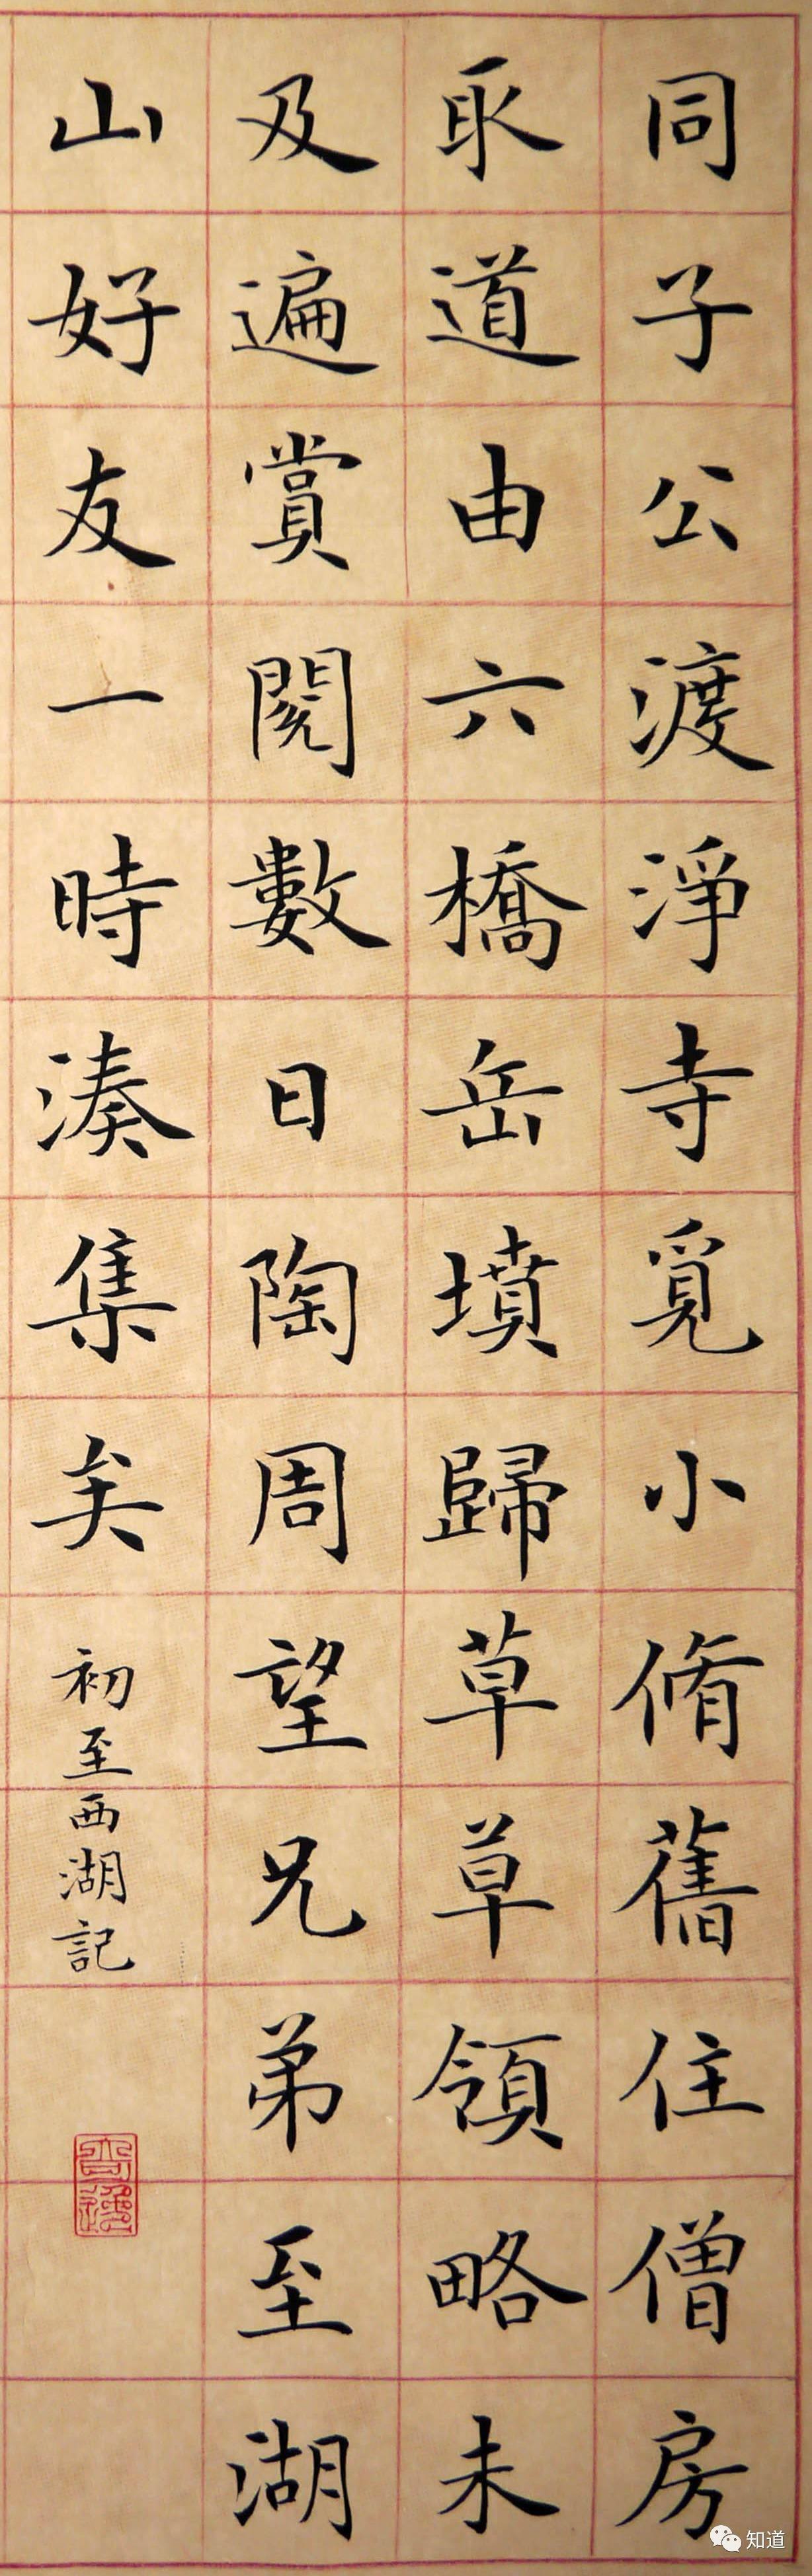 同子公渡淨寺覓小脩舊住僧房
取道由六橋岳墳歸草草領略未
及遍賞閱數日陶周望兄弟至湖
山好友一時湊集矣
初至西湖記
知道